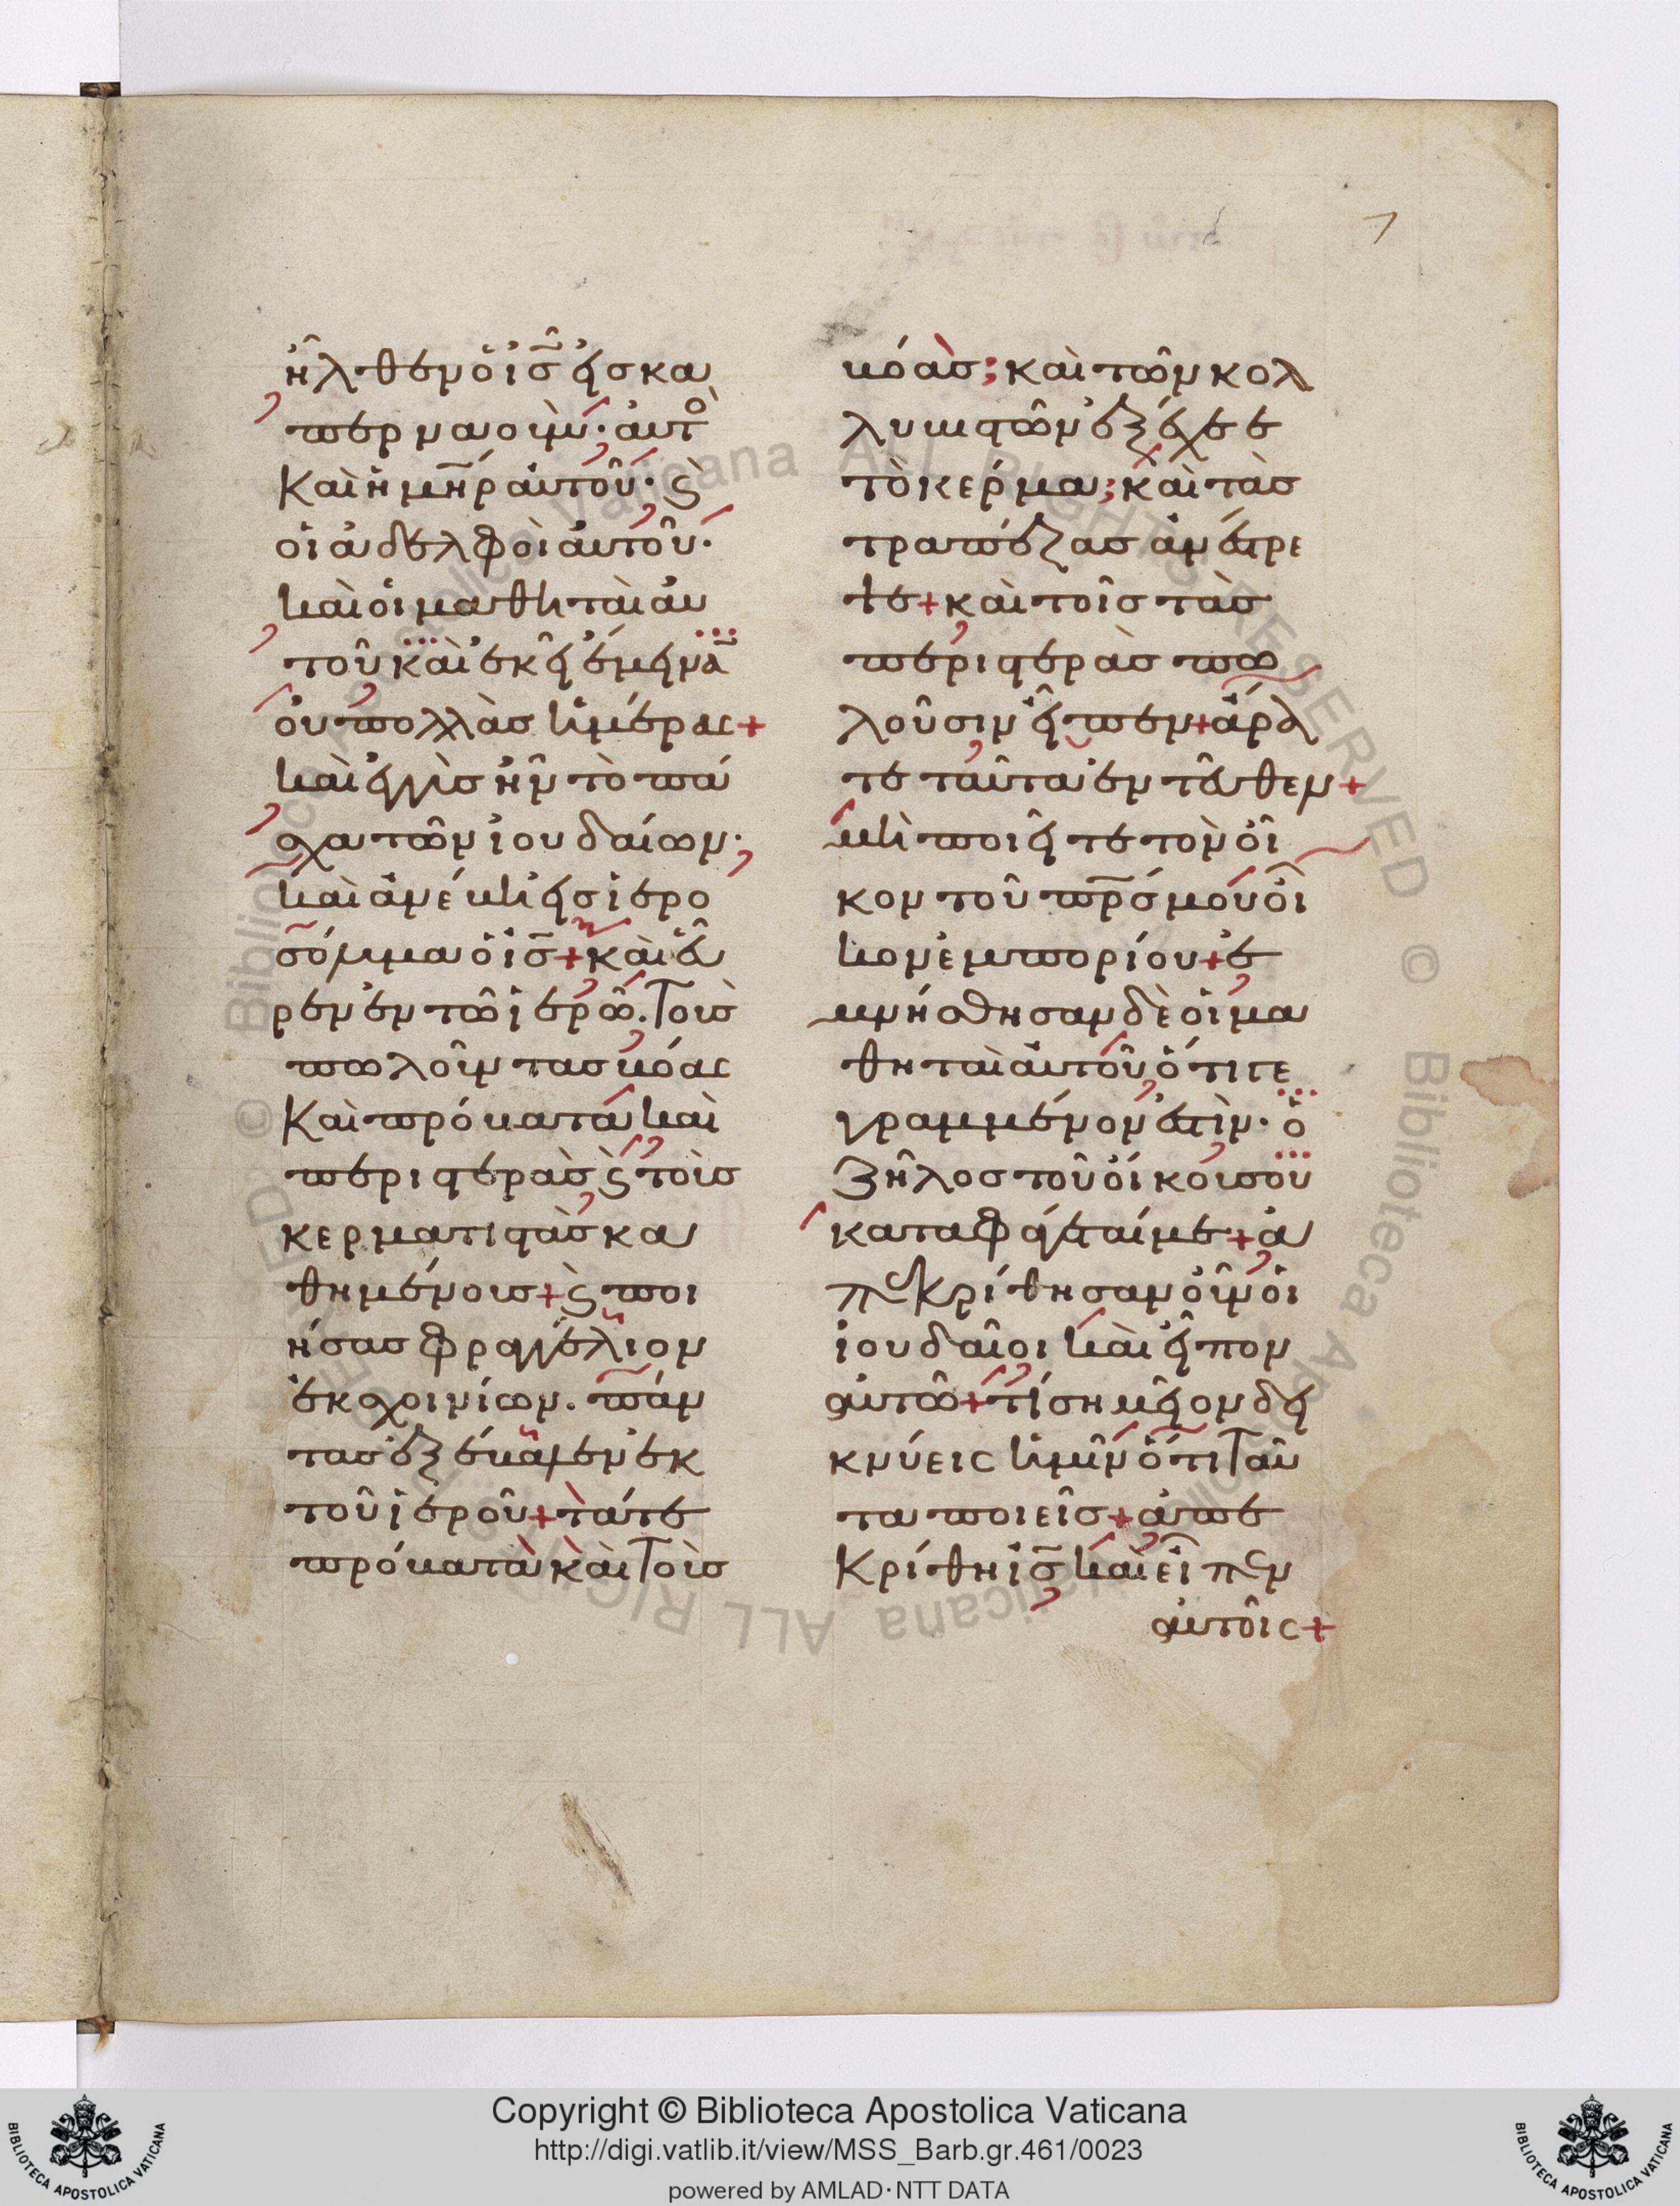 7
ἦλθεν ὁ ις̅ εἰς κα
περναούμ· αὐτὸ
καὶ ἡ μηρ̅ αὐτοῦ· ϛ̀
οἱ ἀδελφοὶ αὐτοῦ·
καὶ οἱ μαθηταὶ αυ
τοῦ καὶ ἐκεῖ ἔμεινα̅
οὐ πολλὰς ἡμέρας+
καὶ ἐγγὺς ἦν τὸ πά
σχα τῶν ἰουδαίων·
καὶ ἀνέβη εἰς ἱερο
σόλυμα ὁ ις̅+ καὶ εὗ
ρεν ἐν τῶ ἱερῶ. τοὺς
πωλοῦντας βόας
καὶ πρόβατα καὶ
περιστερὰς ϛ̀ τοὺς
κερματιστὰς κα
θημένους+ ϛ̀ ποι
ήσας φραγγέλιον
ἐκ σχοινίων. πάν
τας ἐξέβαλεν ἐκ
τοῦ ἱεροῦ+ τά τε
πρόβατα καὶ τοὺς
βόας; καὶ τῶν κολ
λυβιστῶν ἐξέχεε
τὸ κέρμα; καὶ τὰς
τραπέζας ἀνέστρε
ψε+ καὶ τοῖς τὰς
περιστερὰς πω
λοῦσιν εἶπεν+ ἄρα
τε ταῦτα ἐντεῦθεν+
μὴ ποιεῖτε τὸν οἶ
κον τοῦ πρς̅ μου οἶ
κον ἐμπορίου+ ἐ
μνήσθησαν δὲ οἱ μα
θηταὶ αὐτοῦ ὅτι γε
γραμμένον ἐστὶν· ὁ
ζῆλος τοῦ οἴκου σου
καταφάγεταί με+ ἀ
πεκρίθησαν οὖν οἱ
ἰουδαῖοι καὶ εἶπον
αὐτῶ+ τί σημεῖον δει
κνύεις ἡμῖν ὅτι ταῦ
τα ποιεῖς+ ἀπε
κρίθη ις̅ καὶ εἶπεν
αὐτοῖς+
Copyright © Biblioteca Apostolica Vaticana
http://digi.vatlib.it/view/MSS_Barb.gr.461/0023
powered by AMLAD·NTT DATA
BIBLIOTECA APOSTOLICA VATICANA
BIBLIOTECA APOSTOLICA VATICANA
© Biblioteca Apostolica Vaticana ALL RIGHTS RESERVED © Biblioteca Apostolica Vaticana ALL RIGHTS RESERVED